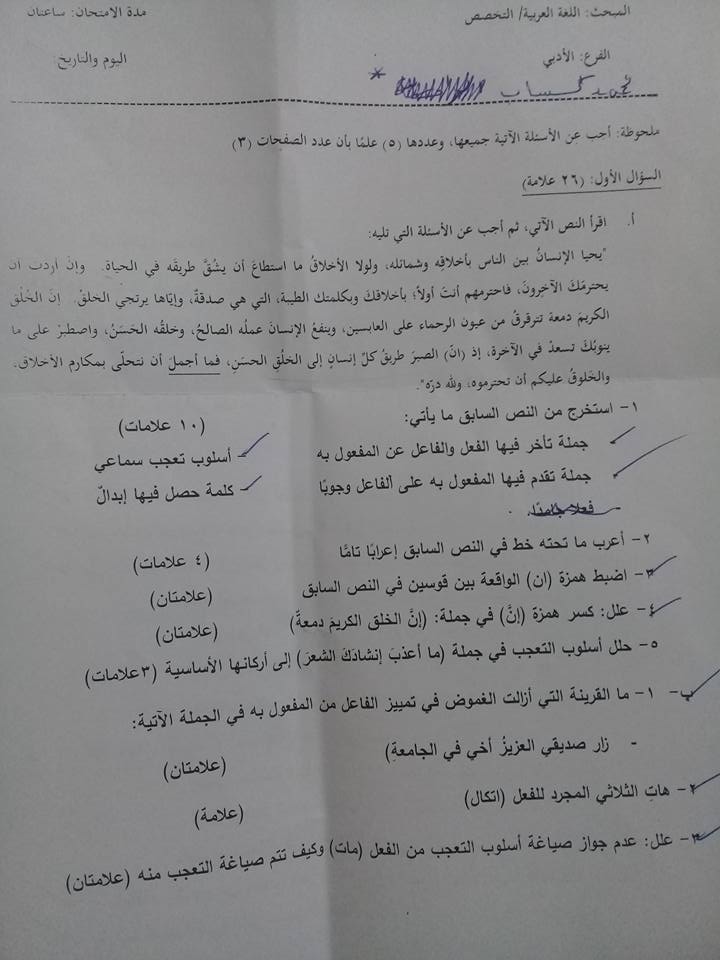 المبحث: اللغة العربية/ التخصص
مدة الامتحان: ساعتان
الفرع: الأدبي
اليوم والتاريخ:
ملحوظة: أجب عن الأسئلة الآتية جميعها، وعددها (٥) علمًا بأن عدد الصفحات (٣)
السؤال الأول: (٢٦ علامة)
أ. اقرأ النص الآتي، ثم أجب عن الأسئلة التي تليه:
"يحيا الإنسانُ بين الناس بأخلاقِه وشمائله، ولولا الأخلاقُ ما استطاعَ أن يشُقَّ طريقَه في الحياةِ. وإنْ أردت أن
يحترمَكَ الآخرونَ، فاحترمهم أنتَ أولاً؛ بأخلاقكَ وبكلمتك الطيبة، التي هي صدقةٌ، وإيّاها يرتجي الخلقُ. إنَّ الخُلُق
الكريمَ دمعة تترقرقُ من عيون الرحماء على العابسين، وينفعُ الإنسانَ عملُه الصالحُ، وخلقُه الحَسَنُ، واصطبرْ على ما
ينوبُكَ تسعدْ في الآخرة، إذ (انّ) الصبرَ طريقُ كلّ إنسانٍ إلى الخلُقِ الحسَنِ، فما أجملَ أن نتحلّى بمكارم الأخلاق.
والخَلوقُ عليكم أن تحترموه، ولله درّه".
١- استخرج من النص السابق ما يأتي: (١٠ علامات)
جملة تأخر فيها الفعل والفاعل عن المفعول به - أسلوب تعجب سماعي
جملة تقدم فيها المفعول به على الفاعل وجوبًا - كلمة حصل فيها إبدالٌ
- فعلا جامدًا.
٢- أعرب ما تحته خط في النص السابق إعرابًا تامًّا (٤ علامات)
٣- اضبط همزة (ان) الواقعة بين قوسين في النص السابق (علامتان)
٤- علل: كسر همزة (إنَّ) في جملة: (إنَّ الخلق الكريمَ دمعةٌ) (علامتان)
٥- حلل أسلوب التعجب في جملة (ما أعذبَ إنشادَكَ الشعرَ) إلى أركانها الأساسية (٣علامات)
ب- ١- ما القرينة التي أزالت الغموض في تمييز الفاعل من المفعول به في الجملة الآتية:
- زار صديقي العزيزُ أخي في الجامعةِ) (علامتان)
٢- هاتِ الثلاثي المجرد للفعل (اتكال) (علامة)
٣- علل: عدم جواز صياغة أسلوب التعجب من الفعل (مات) وكيف تتم صياغة التعجب منه (علامتان)